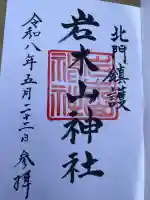 北門鎮護
岩木山神社
令和八年五月二十二日参拝